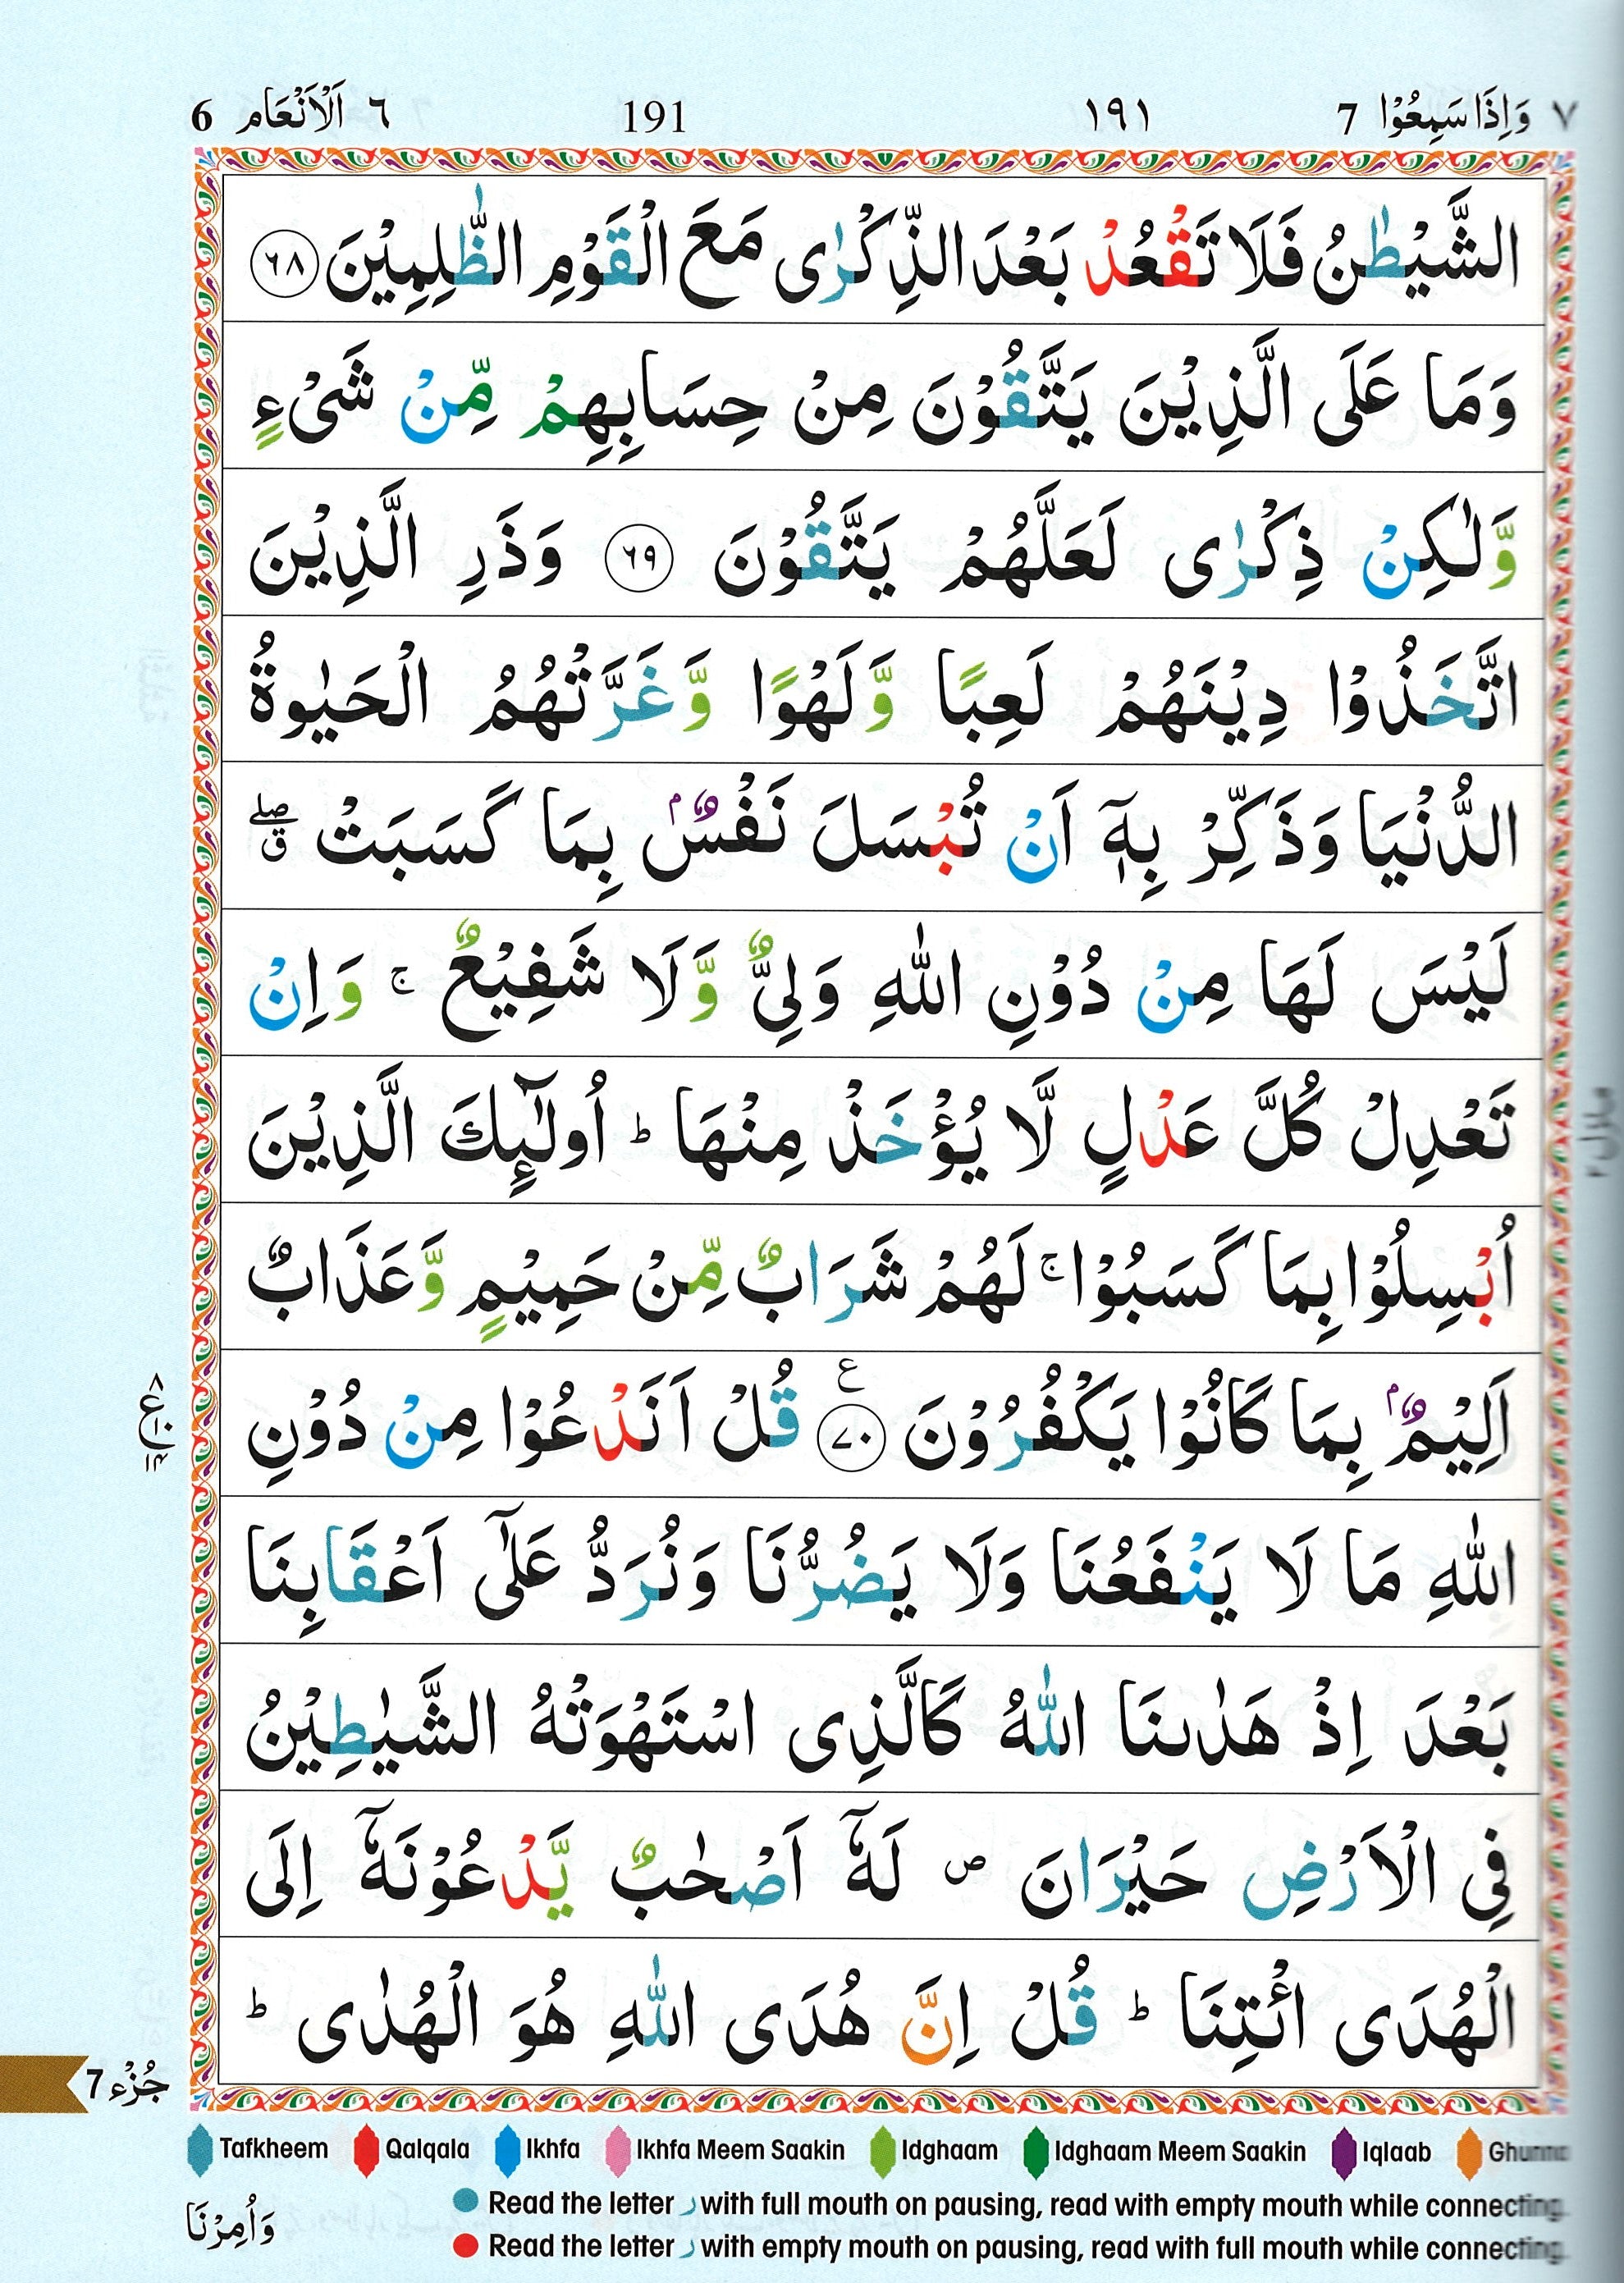 6 اَلْاَنْعَام ٦ 191 ١٩١ 7 وَاِذَا سَمِعُوْا ٧
الشَّيْطٰنُ فَلَا تَقْعُدْ بَعْدَ الذِّكْرٰى مَعَ الْقَوْمِ الظّٰلِمِيْنَ ٦٨
وَمَا عَلَى الَّذِيْنَ يَتَّقُوْنَ مِنْ حِسَابِهِمْ مِّنْ شَىْءٍ
وَّلٰكِنْ ذِكْرٰى لَعَلَّهُمْ يَتَّقُوْنَ ٦٩ وَذَرِ الَّذِيْنَ
اتَّخَذُوْا دِيْنَهُمْ لَعِبًا وَّلَهْوًا وَّغَرَّتْهُمُ الْحَيٰوةُ
الدُّنْيَا وَذَكِّرْ بِهٖٓ اَنْ تُبْسَلَ نَفْسٌۢ بِمَا كَسَبَتْ ۖق
لَيْسَ لَهَا مِنْ دُوْنِ اللّٰهِ وَلِىٌّ وَّلَا شَفِيْعٌ ۚ وَاِنْ
تَعْدِلْ كُلَّ عَدْلٍ لَّا يُؤْخَذْ مِنْهَا ؕ اُولٰٓئِكَ الَّذِيْنَ
اُبْسِلُوْا بِمَا كَسَبُوْا ۚ لَهُمْ شَرَابٌ مِّنْ حَمِيْمٍ وَّعَذَابٌ
اَلِيْمٌۢ بِمَا كَانُوْا يَكْفُرُوْنَ ٧٠ ع قُلْ اَنَدْعُوْا مِنْ دُوْنِ
اللّٰهِ مَا لَا يَنْفَعُنَا وَلَا يَضُرُّنَا وَنُرَدُّ عَلٰٓى اَعْقَابِنَا
بَعْدَ اِذْ هَدٰىنَا اللّٰهُ كَالَّذِى اسْتَهْوَتْهُ الشَّيٰطِيْنُ
فِى الْاَرْضِ حَيْرَانَ ۪ لَهٗٓ اَصْحٰبٌ يَّدْعُوْنَهٗٓ اِلَى
الْهُدَى ائْتِنَا ؕ قُلْ اِنَّ هُدَى اللّٰهِ هُوَ الْهُدٰى ؕ
7 جُزْء
Tafkheem Qalqala Ikhfa Ikhfa Meem Saakin Idghaam Idghaam Meem Saakin Iqlaab Ghunna
Read the letter ر with full mouth on pausing, read with empty mouth while connecting.
Read the letter ر with empty mouth on pausing, read with full mouth while connecting.
وَاُمِرْنَا